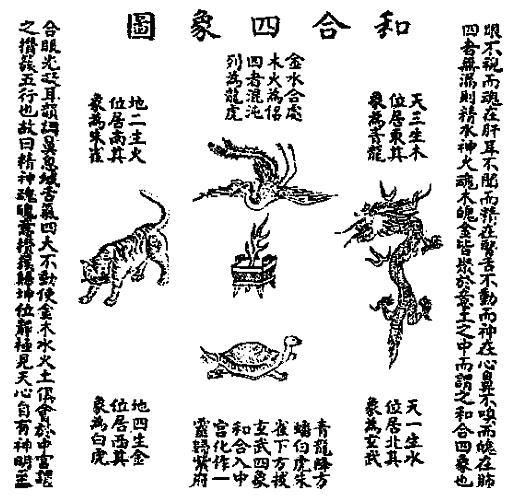 和合四象圖
眼不視而魂在肝耳不聞而精在腎舌不動而神在心鼻不嗅而魄在肺
四者無漏則精水神火魂木魄金皆聚於意土之中而謂之和合四象也
天三生木
位居東其
象為青龍
金水合處
木火為侶
四者混沌
列為龍虎
地二生火
位居南其
象為朱雀
天一生水
位居北其
象為玄武
青龍降方
蟠虎朱
雀下方
玄武四象
和合入中
宮化作一
靈歸紫府
地四生金
位居西其
象為白虎
合眼光凝耳韻調鼻息緘舌氣四大不動使金木水火土俱會於中宮謂
之攢簇五行也故曰精神魂魄意攢簇歸坤位靜極見天心自有神明至